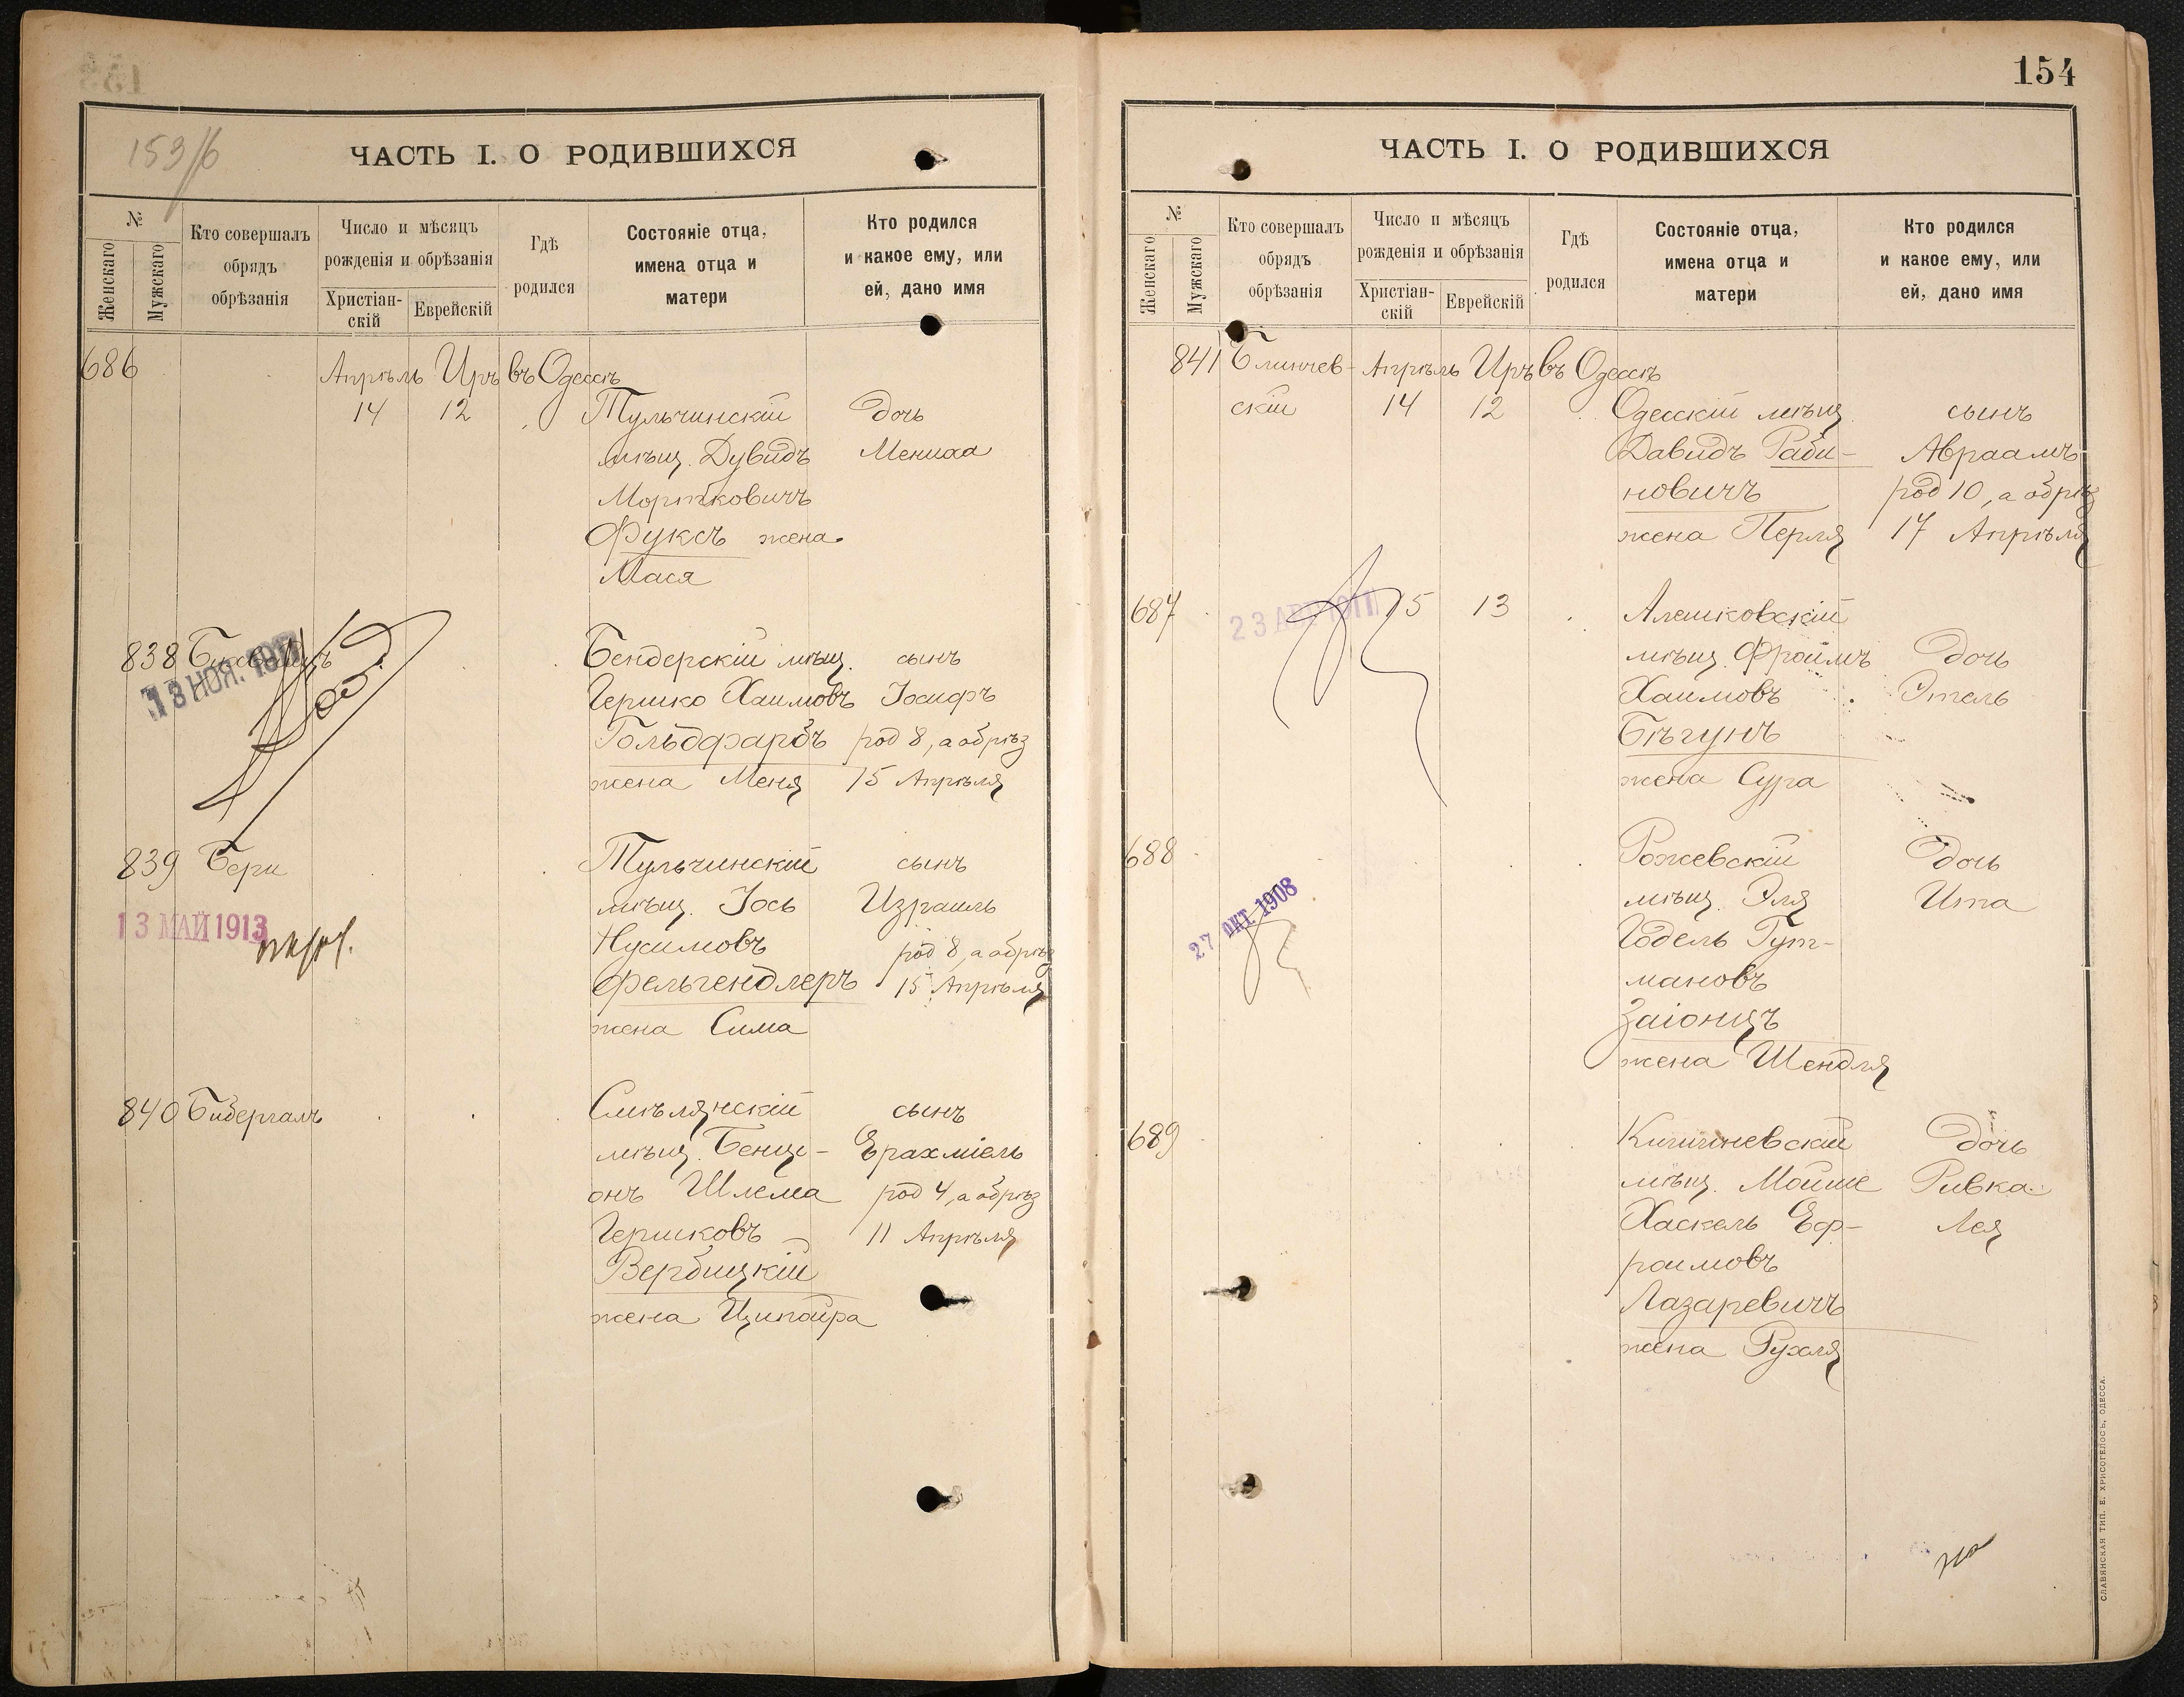 153/б
ЧАСТЬ I. О РОДИВШИХСЯ
№
Женскаго
Мужскаго
Кто совершалъ
обрядъ
обрѣзанія
Число и мѣсяцъ
рожденія и обрѣзанія
Христіан-
скій
Еврейскій
Гдѣ
родился
Состояніе отца,
имена отца и
матери
Кто родился
и какое ему, или
ей, дано имя
686 Апрѣль Иръ въ Одессѣ
14 12 Тульчинскій дочь
мѣщ. Дувидъ
Мортковичъ
Фуксъ жена
Мася
838 Бендерскій мѣщ. сынъ
13 НОЯ.
Гершко Хаимовъ Іосифъ
Гольдфарбъ род 8, а обрѣз
жена Меня 15 Апрѣля
839 Бери Тульчинскій сынъ
13 МАЙ 1913
мѣщ. Іось Израиль
Нусимовъ род 8, а обрѣз
Фельгендлеръ 15 Апрѣля
жена Сима
840 Бибергалъ Смѣлянскій сынъ
мѣщ. Бенці- Ерахміель
онъ Шлема род 4, а обрѣз
Гершковъ 11 Апрѣля
Вербицкій
жена Ципойра
154
ЧАСТЬ I. О РОДИВШИХСЯ
№
Женскаго
Мужскаго
Кто совершалъ
обрядъ
обрѣзанія
Число и мѣсяцъ
рожденія и обрѣзанія
Христіан-
скій
Еврейскій
Гдѣ
родился
Состояніе отца,
имена отца и
матери
Кто родился
и какое ему, или
ей, дано имя
841 Блинчев- Апрѣль Иръ въ Одессѣ
скій 14 12 Одесскій мѣщ. сынъ
Давидъ Раби- Авраамъ
новичъ род 10, а обрѣз
жена Перля 17 Апрѣля
687 15 13 Алешковскій
мѣщ. Фроимъ дочь
Хаимовъ Этель
Бѣгунъ
жена Сура
688 Рожевскій дочь
27 ОКТ. 1908
мѣщ. Эля Ита
Годель Гут-
мановъ
Заіонцъ
жена Шендля
689 Кишиневскій дочь
мѣщ. Мойше Ривка
Хаскель Еф- Лея
раимовъ
Лазаревичъ
жена Рухля
СЛАВЯНСКАЯ ТИП. Е. ХРИСОГЕЛОСЪ, ОДЕССА.